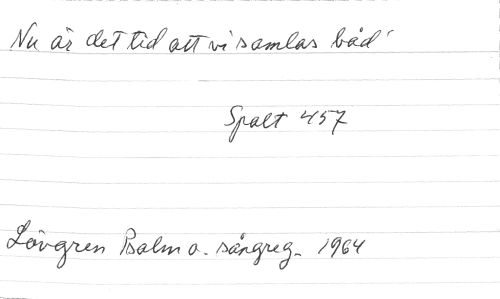 Nu är det tid att vi samlas båd'
Spalt 457
Lövgren Psalm o. sångreg. 1964